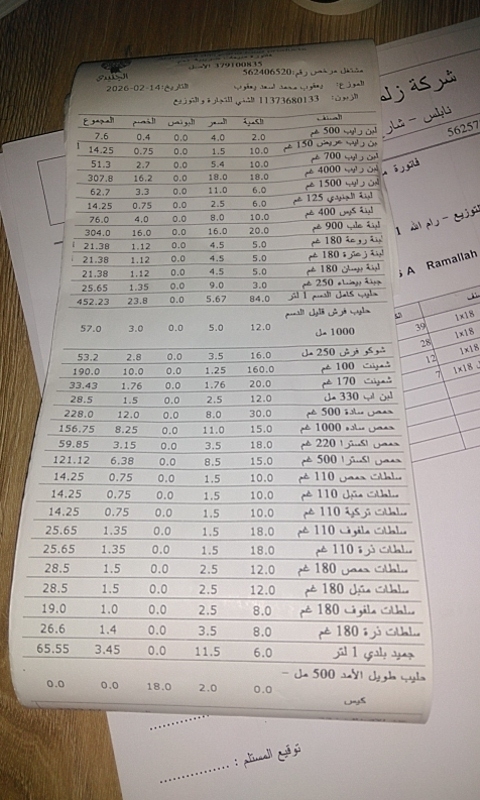 379100835
مشتغل مرخص رقم:562406520
الموزع: يعقوب محمد اسعد يعقوب التاريخ:14-02-2026
الزبون: 11373680133 الشني للتجارة و التوزيع
الصنف الكمية السعر البونص الخصم المجموع
لبن رايب 500 غم 2.0 4.0 0.0 0.4 7.6
بن رايب عريض 150 غم 10.0 1.5 0.0 0.75 14.25
لبن رايب 700 غم 10.0 5.4 0.0 2.7 51.3
لبن رايب 4000 غم 18.0 18.0 0.0 16.2 307.8
لبن رايب 1500 غم 6.0 11.0 0.0 3.3 62.7
لبنة الجنيدي 125 غم 6.0 2.5 0.0 0.75 14.25
لبنة كيس 400 غم 10.0 8.0 0.0 4.0 76.0
لبنة علب 900 غم 20.0 16.0 0.0 16.0 304.0
لبنة روعة 180 غم 5.0 4.5 0.0 1.12 21.38
لبنة زعترة 180 غم 5.0 4.5 0.0 1.12 21.38
لبنة بيسان 180 غم 5.0 4.5 0.0 1.12 21.38
جبنة بيضاء 250 غم 3.0 9.0 0.0 1.35 25.65
حليب كامل الدسم 1 لتر 84.0 5.67 0.0 23.8 452.23
حليب فرش قليل الدسم
1000 مل 12.0 5.0 0.0 3.0 57.0
شوكو فرش 250 مل 16.0 3.5 0.0 2.8 53.2
شمينت 100 غم 160.0 1.25 0.0 10.0 190.0
شمينت 170 غم 20.0 1.76 0.0 1.76 33.43
لبن اب 330 مل 12.0 2.5 0.0 1.5 28.5
حمص سادة 500 غم 30.0 8.0 0.0 12.0 228.0
حمص ساده 1000 غم 15.0 11.0 0.0 8.25 156.75
حمص اكسترا 220 غم 18.0 3.5 0.0 3.15 59.85
حمص اكسترا 500 غم 15.0 8.5 0.0 6.38 121.12
سلطات حمص 110 غم 10.0 1.5 0.0 0.75 14.25
سلطات متبل 110 غم 10.0 1.5 0.0 0.75 14.25
سلطات تركية 110 غم 10.0 1.5 0.0 0.75 14.25
سلطات ملفوف 110 غم 18.0 1.5 0.0 1.35 25.65
سلطات ذرة 110 غم 18.0 1.5 0.0 1.35 25.65
سلطات حمص 180 غم 12.0 2.5 0.0 1.5 28.5
سلطات متبل 180 غم 12.0 2.5 0.0 1.5 28.5
سلطات ملفوف 180 غم 8.0 2.5 0.0 1.0 19.0
سلطات ذرة 180 غم 8.0 3.5 0.0 1.4 26.6
جميد بلدي 1 لتر 6.0 11.5 0.0 3.45 65.55
حليب طويل الأمد 500 مل -
كيس 0.0 2.0 18.0 0.0 0.0
شركة
نابلس - شار
56257
فاتورة
التوزيع - رام الله
A Ramallah
39 1x18
28 1x18
12 1x18
7 1x18
توقيع المستلم : ................